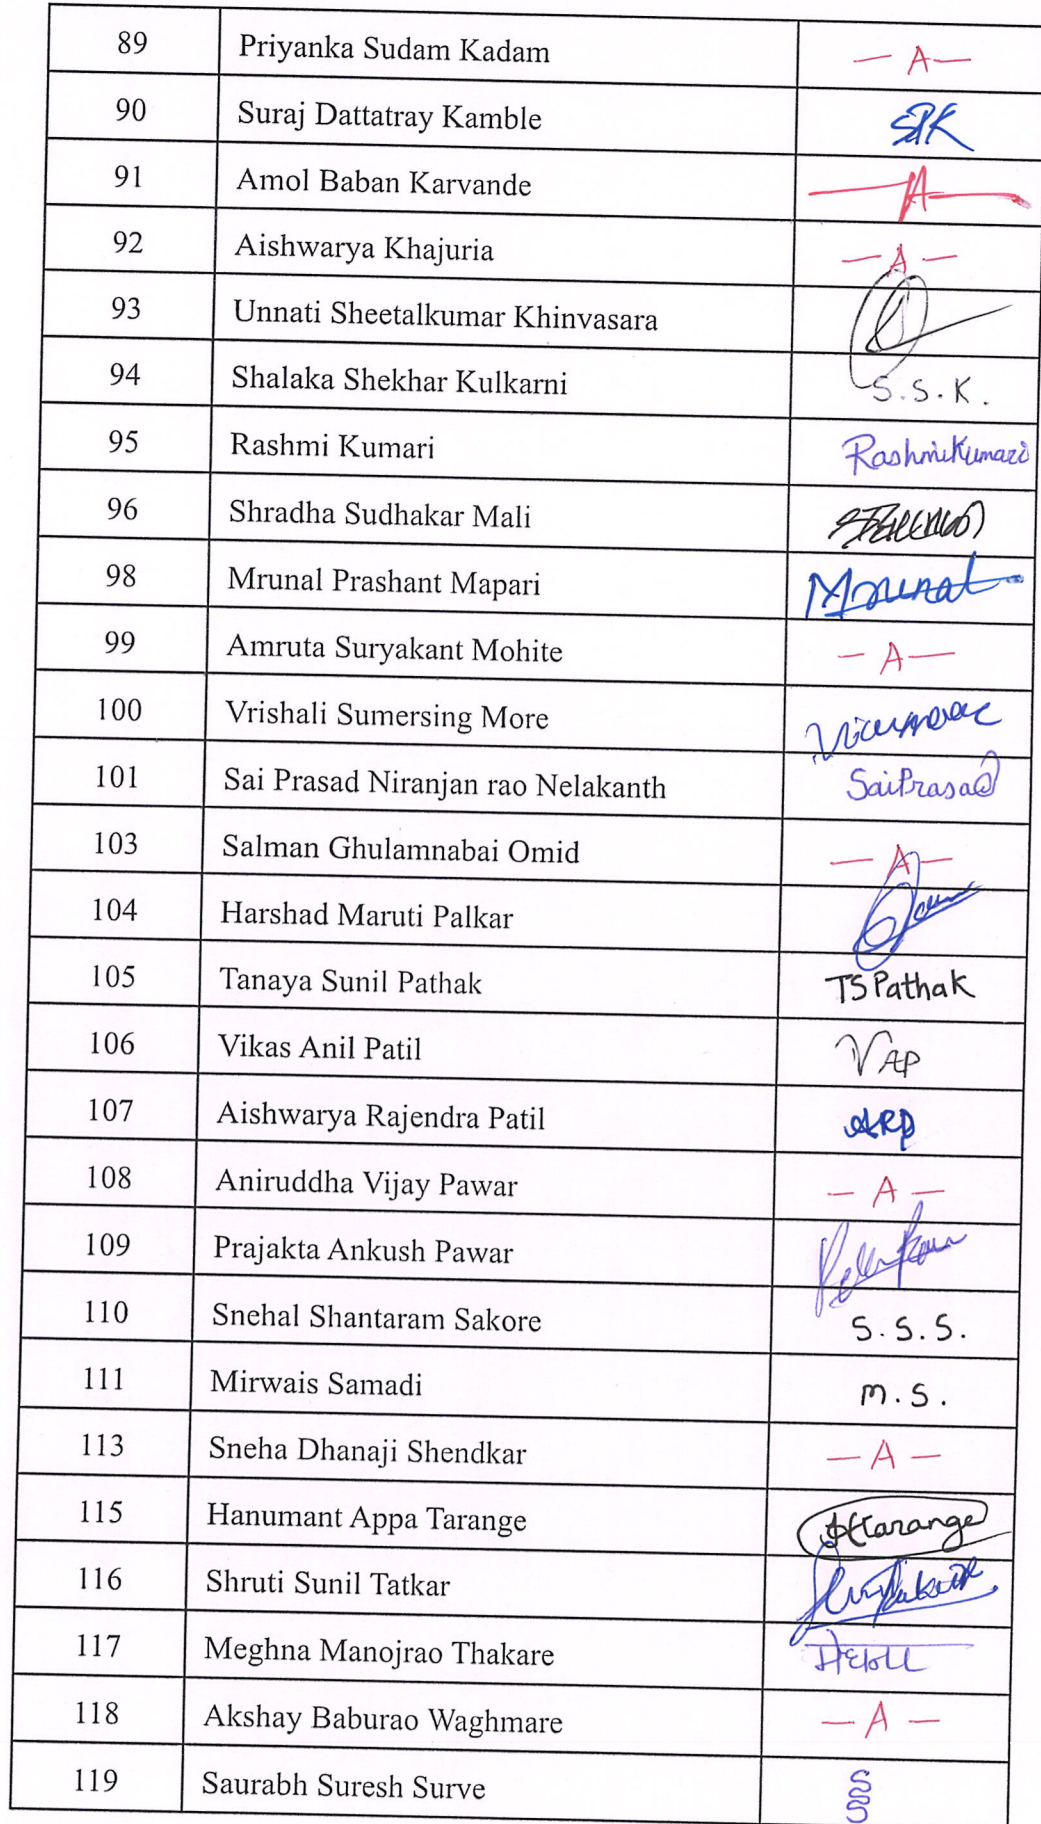 89 Priyanka Sudam Kadam — A —
90 Suraj Dattatray Kamble SPK
91 Amol Baban Karvande — A —
92 Aishwarya Khajuria — A —
93 Unnati Sheetalkumar Khinvasara
94 Shalaka Shekhar Kulkarni S.S.K.
95 Rashmi Kumari RashmiKumari
96 Shradha Sudhakar Mali
98 Mrunal Prashant Mapari Mrunal
99 Amruta Suryakant Mohite — A —
100 Vrishali Sumersing More
101 Sai Prasad Niranjan rao Nelakanth SaiPrasad
103 Salman Ghulamnabai Omid — A —
104 Harshad Maruti Palkar
105 Tanaya Sunil Pathak TSPathak
106 Vikas Anil Patil VAP
107 Aishwarya Rajendra Patil ARP
108 Aniruddha Vijay Pawar — A —
109 Prajakta Ankush Pawar
110 Snehal Shantaram Sakore S.S.S.
111 Mirwais Samadi M.S.
113 Sneha Dhanaji Shendkar — A —
115 Hanumant Appa Tarange
116 Shruti Sunil Tatkar
117 Meghna Manojrao Thakare
118 Akshay Baburao Waghmare — A —
119 Saurabh Suresh Surve SSS